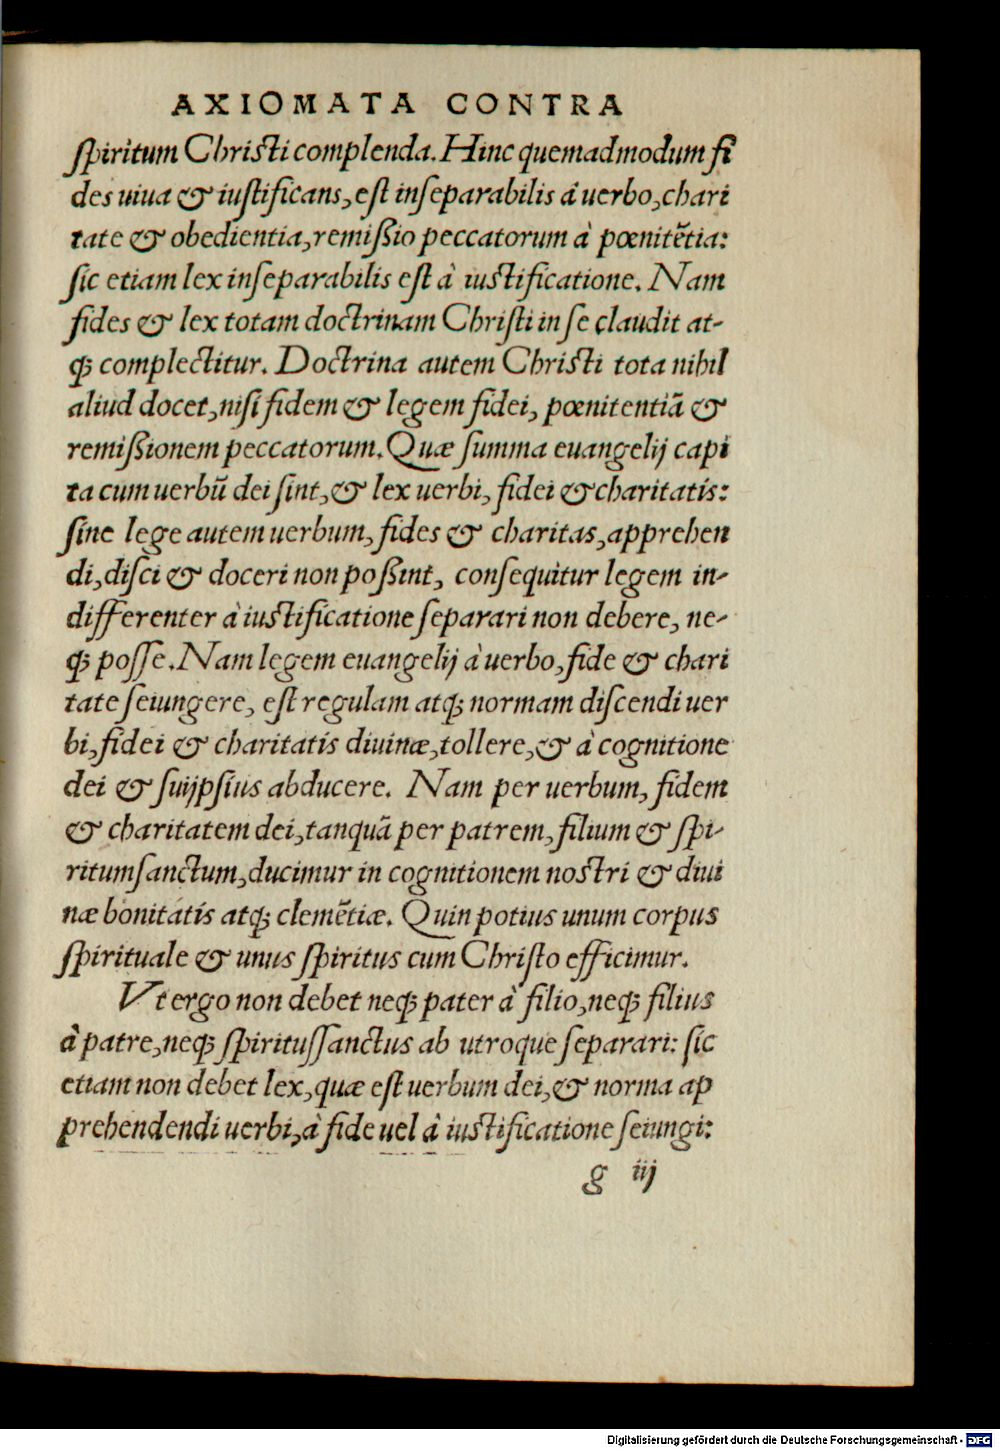 AXIOMATA CONTRA
spiritum Christi complenda. Hinc quemadmodum fi
des uiua & iustificans, est inseparabilis à uerbo, chari
tate & obedientia, remißio peccatorum à pœnitẽtia:
sic etiam lex inseparabilis est à iustificatione. Nam
fides & lex totam doctrinam Christi in se claudit at-
q́; complectitur. Doctrina autem Christi tota nihil
aliud docet, nisi fidem & legem fidei, pœnitentiã &
remißionem peccatorum. Quæ summa euangelij capi
ta cum uerbũ dei sint, & lex uerbi, fidei & charitatis:
sine lege autem uerbum, fides & charitas, apprehen
di, disci & doceri non poßint, consequitur legem in-
differenter à iustificatione separari non debere, ne-
q́; posse. Nam legem euangelij à uerbo, fide & chari
tate seiungere, est regulam atq́; normam discendi uer
bi, fidei & charitatis diuinæ, tollere, & à cognitione
dei & suijpsius abducere. Nam per uerbum, fidem
& charitatem dei, tanquã per patrem, filium & spi-
ritumsanctum, ducimur in cognitionem nostri & diui
næ bonitatis atq́; clemẽtiæ. Quin potius unum corpus
spirituale & unus spiritus cum Christo efficimur.
Vt ergo non debet neq́; pater à filio, neq́; filius
à patre, neq́; spiritussanctus ab utroque separari: sic
etiam non debet lex, quæ est uerbum dei, & norma ap
prehendendi uerbi, à fide uel à iustificatione seiungi:
g iij
Digitalisierung gefördert durch die Deutsche Forschungsgemeinschaft - DFG